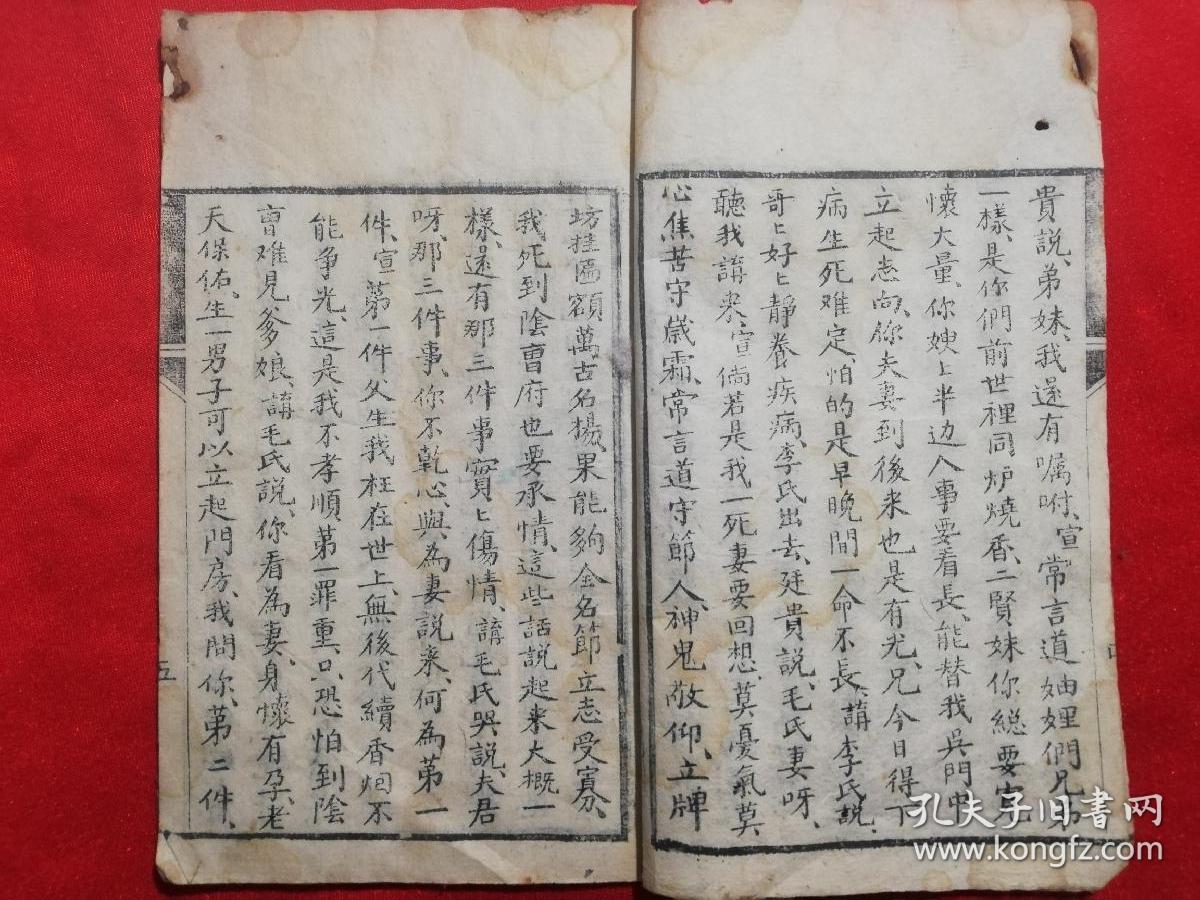 貴説、弟妹、我還有嘱咐、宣常言道妯娌們兄弟
一樣、是你們前世裡同炉燒香、二賢妹你總要寬
懷大量、你嫂上半边人事要看長、能替我吳門中
立起志向、你夫妻到後来也是有光、兄今日得下
病生死难定、怕的是早晚間一命不長、講李氏説、
哥上好上靜養疾病、李氏出去、廷貴説、毛氏妻呀、
聽我講来、宣倘若是我一死妻要回想、莫憂氣莫
心焦苦守嵗霜、常言道守節人、神鬼敬仰、立牌
坊挂匾額萬古名揚、果能夠全名節立志受寡、
我死到陰曹府也要承情、這些話説起来大概一
樣、還有那三件事實上傷情、講毛氏哭説、夫君
呀、那三件事、你不乾心、與為妻説来、何為第一
件、宣第一件父生我枉在世上、無後代續香烟不
能争光、這是我不孝順、第一罪重、只恐怕到陰
曹难見爹娘、講毛氏説、你看為妻、身懷有孕、老
天保佑、生一男子可以立起門房、我問你、第二件、
五
孔夫子旧書网
www.kongfz.com